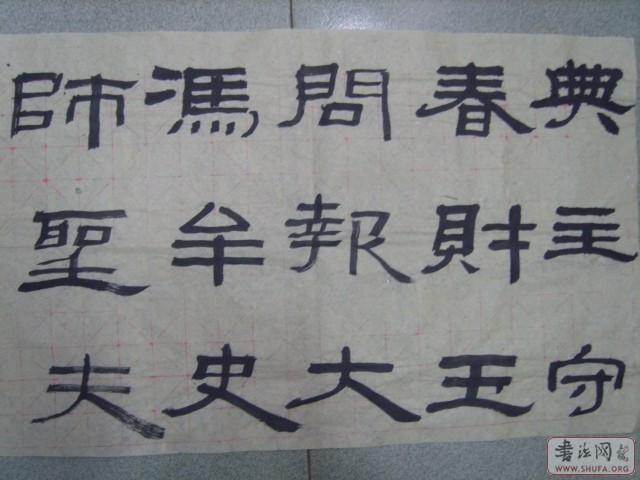 典主守
春財王
問報大
馮牟史
師聖夫
書法网
WWW.SHUFA.ORG